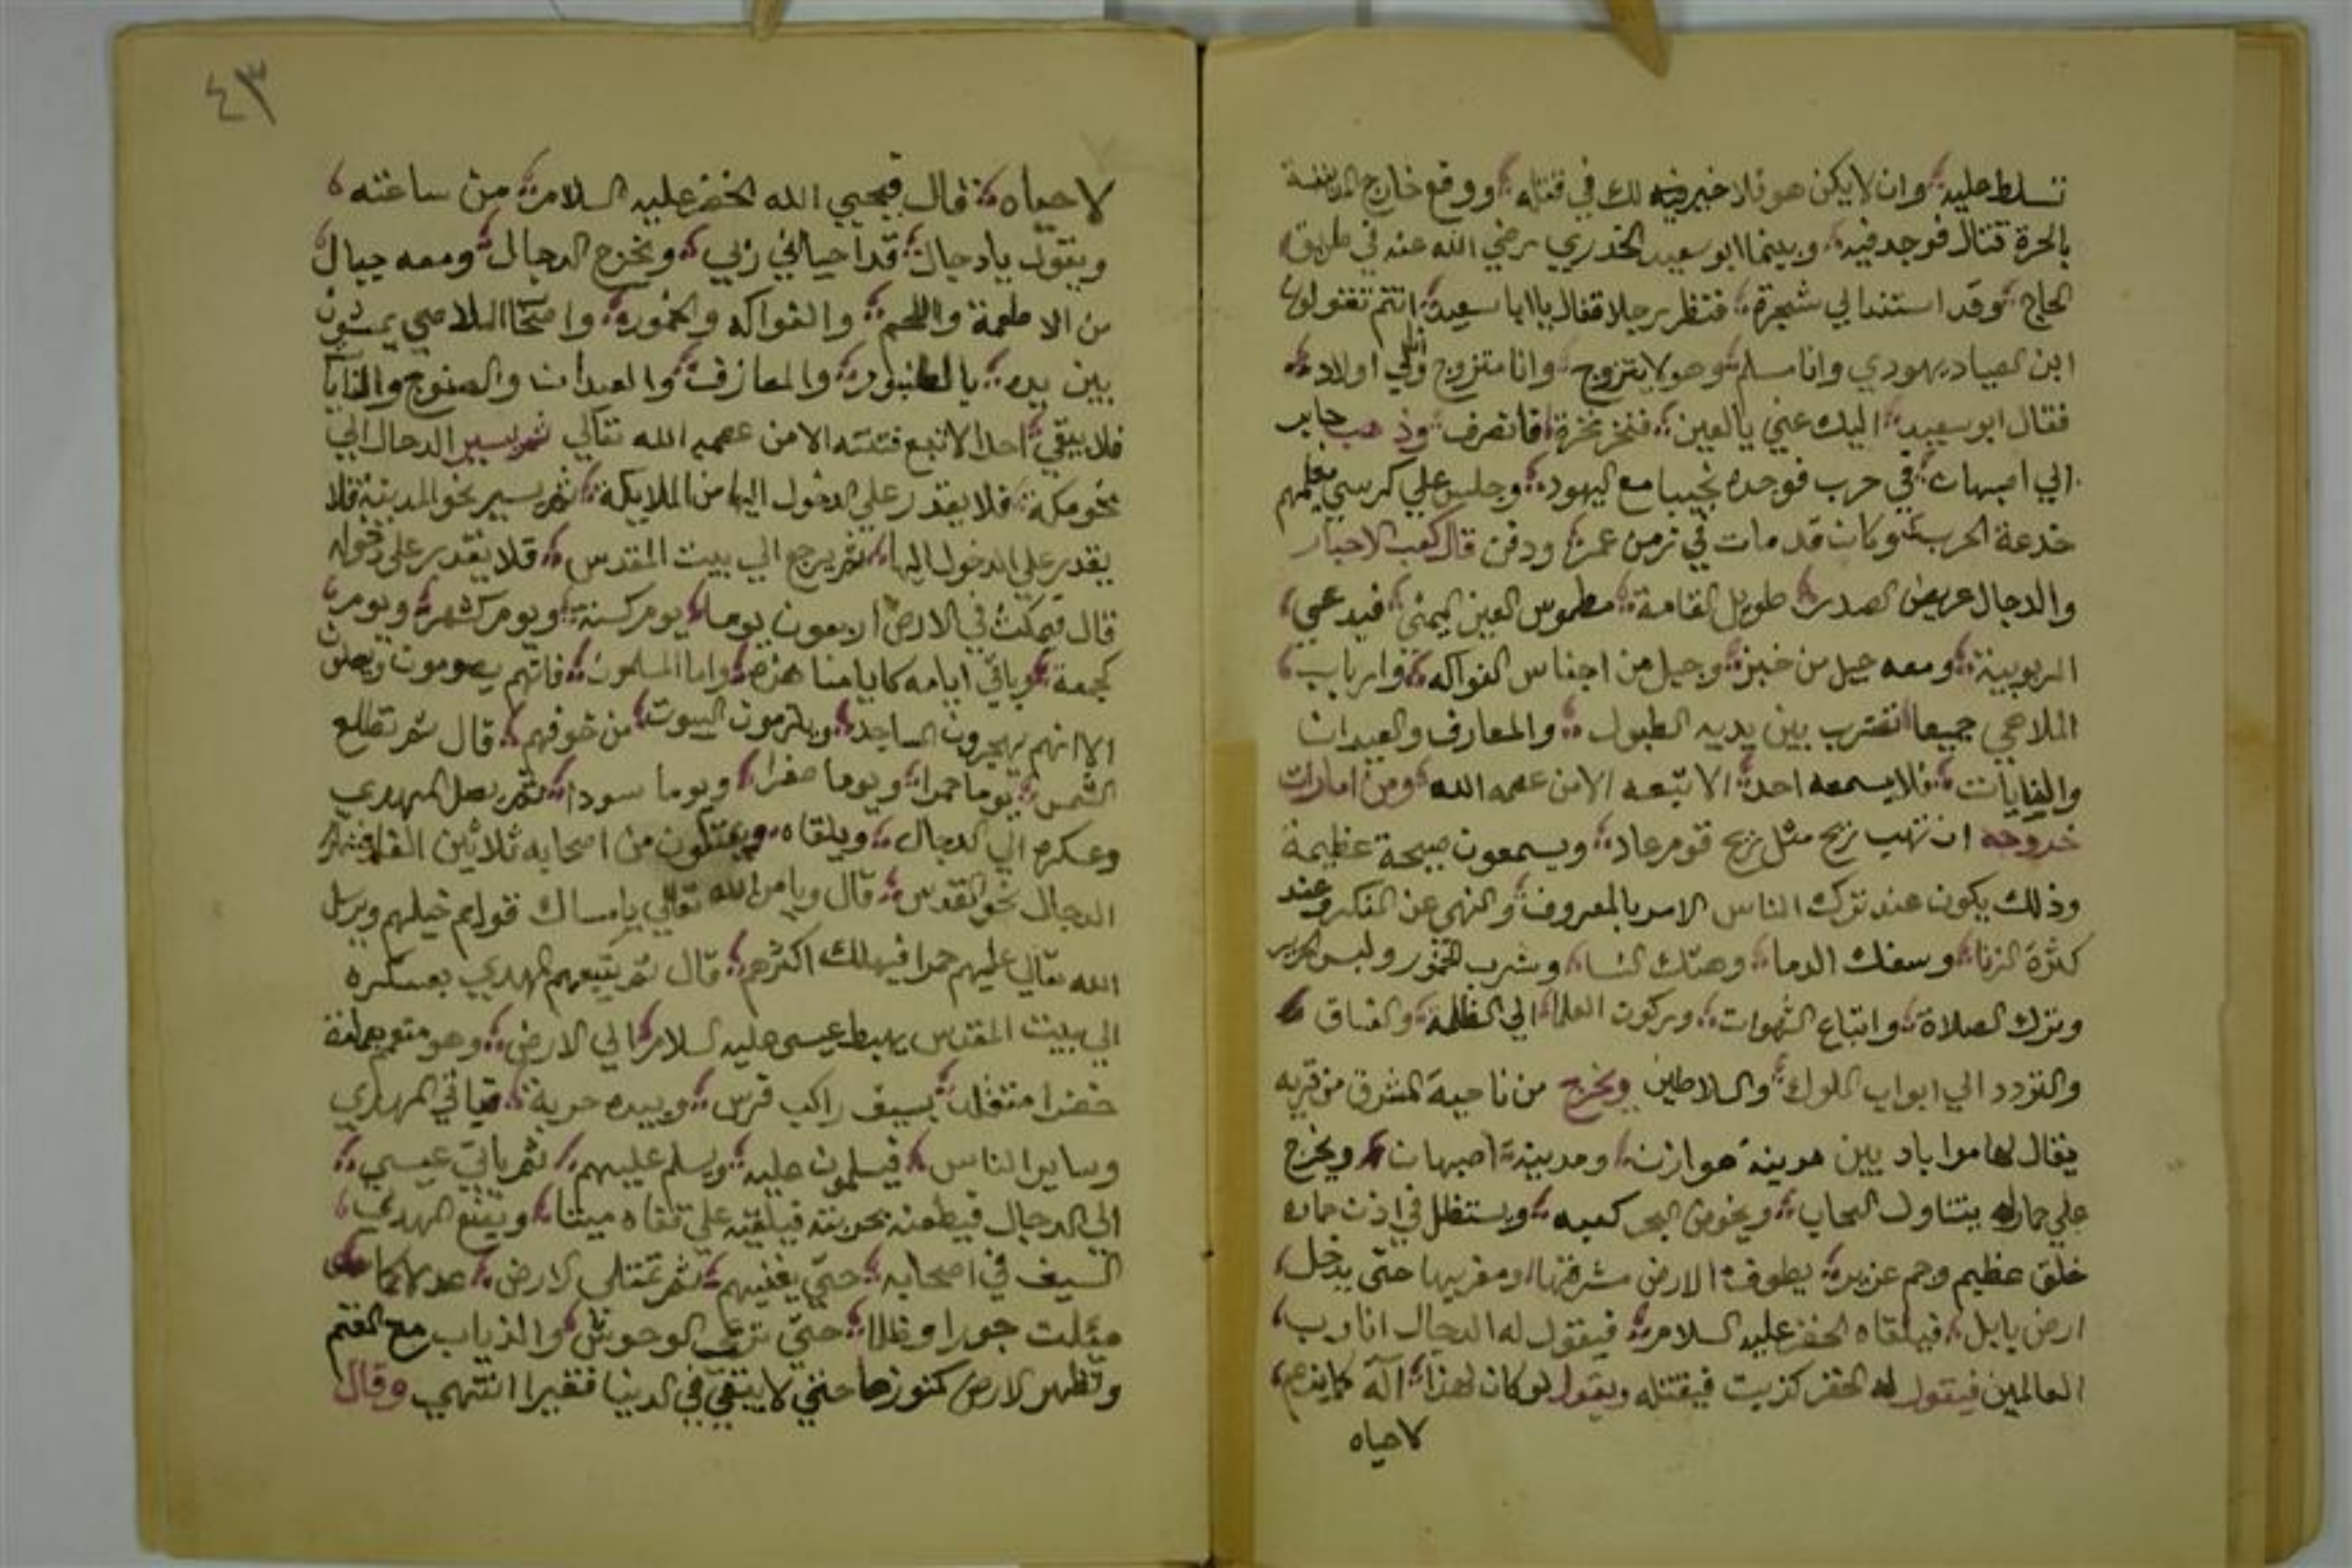 تسلط عليه وان لا يكن هو فلا خير فيه لك في قتله ووقع خارج المدينة
بالحرة قتال فوجد فيه وبينما ابو سعيد الخدري رضي الله عنه في طريق
الحاج وقد استند الي شجرة فنظر رجلا فقال يا ابا سعيد انتم تقولون
ابن الصياد يهودي وانا مسلم وهو لا يتزوج وانا متزوج ولي اولاد
فقال ابو سعيد اليك عني يا لعين فنخر نخرة فانصرف وذهب جابر
الي اصبهان في حرب فوجده نجيبا مع اليهود وجلس علي كرسي يعلمهم
خدعة الحرب وكان قد مات في زمن عمر ودفن قال كعب الاحبار
والدجال عريض الصدر طويل القامة مطموس العين اليمني فيدعي
الربوبية ومعه جبل من خبز وجبل من اجناس الفواكه وارباب
الملاهي جميعا تضرب بين يديه الطبول والمعازف والعيدان
والنايات فلا يسمعه احد الا تبعه الا من عصمه الله ومن امارات
خروجه ان تهب ريح مثل ريح قوم عاد ويسمعون صيحة عظيمة
وذلك يكون عند ترك الناس الامر بالمعروف والنهي عن المنكر وعند
كثرة الزنا وسفك الدما وهتك النسا وشرب الخمور ولبس الحرير
وترك الصلاة واتباع الشهوات وبركون العلما الي الظلمة والفساق
والتردد الي ابواب الملوك والسلاطين ويخرج من ناحية المشرق من قريه
يقال لها مراباد بين مدينة هوازن ومدينة اصبهان ويخرج
علي حمار له يتناول السحاب ويخوض البحر كعبه ويستظل في اذن حماره
خلق عظيم وجم عزيره يطوف الارض مشرقها ومغربها حتي يدخل
ارض بابل فيلقاه الخضر عليه السلام فيقول له الدجال انا رب
العالمين فيقول له الخضر كذبت فيقتله ويقول لو كان لهذا اله كما يزعم
لاحياه
٤٣
لاحياه قال فيحيي الله الخضر عليه السلام من ساعته
ويقول يا دجال قد احياني ربي ويخرج الدجال ومعه جبال
من الاطعمة واللحم والفواكه والخمور واصحاب الملاهي يمشون
بين يده بالطنبور والمعازف والعيدان والصنوج والنايا
فلا يبقي احد الا تبع فتنته الا من عصمه الله تعالي ثم يسير الدجال الي
نحو مكة فلا يقدر علي الدخول اليها من الملايكة ثم يسير نحو المدينة فلا
يقدر علي الدخول اليها ثم يرجع الي بيت المقدس فلا يقدر علي دخوله
قال فيمكث في الارض اربعون يوما يوم كسنة ويوم كشهر ويوم
كجمعة وباقي ايامه كايامنا هذه واما المسلمون فانهم يصومون ويصلون
الا انهم يهجرون المساجد ويلزمون البيوت من خوفهم قال ثم تطلع
الشمس يوما حمرا ويوما صفرا ويوما سودا ثم يصل المهدي
وعسكره الي الدجال ويلقاه ويقتلون من اصحابه ثلاثين الفا فينهزم
الدجال نحو القدس قال ويامر الله تعالي بامساك قوايم خيلهم ويرسل
الله تعالي عليهم حمرا فيهلك اكثرهم قال ثم يتبعهم المهدي بعسكره
الي بيت المقدس يهبط عيسي عليه السلام الي الارض وهو متعمم بعمامة
خضرا متقلد بسيف راكب فرس وبيده حربة فياتي المهدي
وساير الناس فيسلمون عليه ويسلم عليهم ثم ياتي عيسي
الي الدجال فيطعنه بحربته فيلقيه علي قفاه ميتا ويضع المهدي
السيف في اصحابه حتي يفنيهم ثم تمتلي الارض عدلا كما
ميلت جورا وظلما حتي ترعي الوحوش والذياب مع الغنم
وتظهر الارض كنوزها حتي لا يبقي في الدنيا فقيرا انتهي وقال